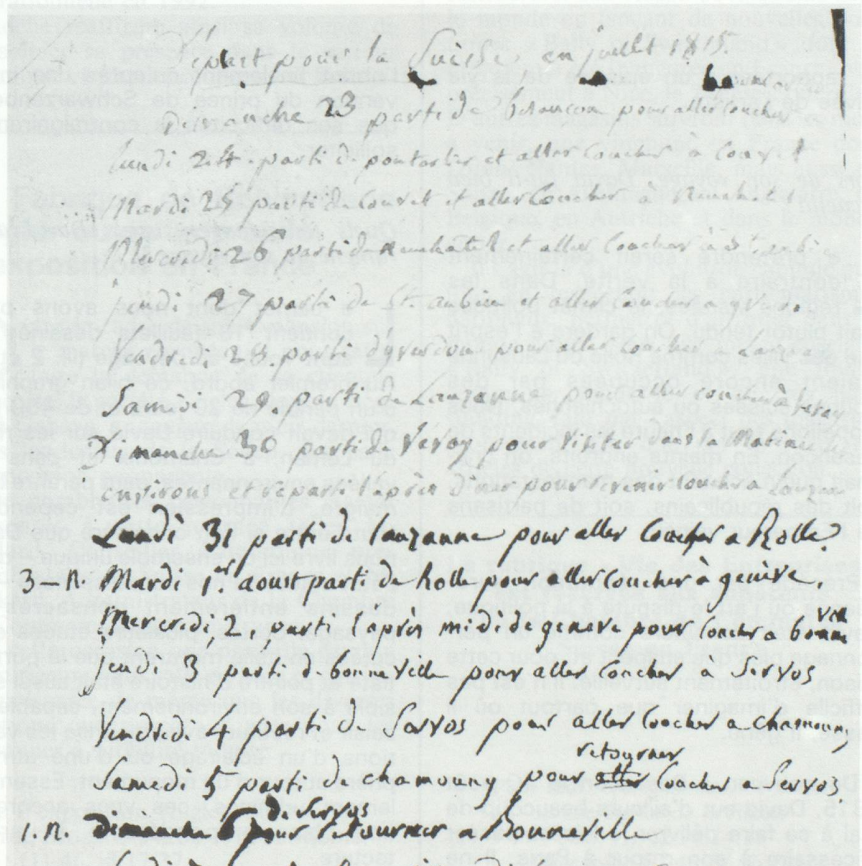 part pour la Suisse, en juillet 1815.
Dimanche 23 parti de besançon pour aller coucher
Lundi 24. parti de pontarlier et aller coucher à Couvet
Mardi 25 parti de Couvet et aller coucher à Neuchatel
Mercredi 26 parti de neuchatel et aller coucher à St aubin
Jeudi 27 parti de St. aubin et aller coucher a yverdo
Vendredi 28. parti d'yverdon pour aller coucher a Lauzane
Samedi 29. parti de Lauzanne pour aller coucher à Vevay
Dimanche 30 parti de Vevay pour visiter dans la Matinée
environs et reparti l'après diner pour revenir coucher a Lauzane
Lundi 31 parti de lauzanne pour aller Coucher a Rolle.
3 – n. Mardi 1er. aoust parti de Rolle pour aller coucher à genève.
Mercredi 2. parti l'après midi de geneve pour coucher a bonneville
jeudi 3 parti d bonneville pour aller coucher a Servos
Vendredi 4 parti de Servos pour aller coucher a chamouny
retourner
Samedi 5 parti de chamouny pour aller coucher a Servos
de Servos
1. n. dimanche 6 pour retourner a Bonneville